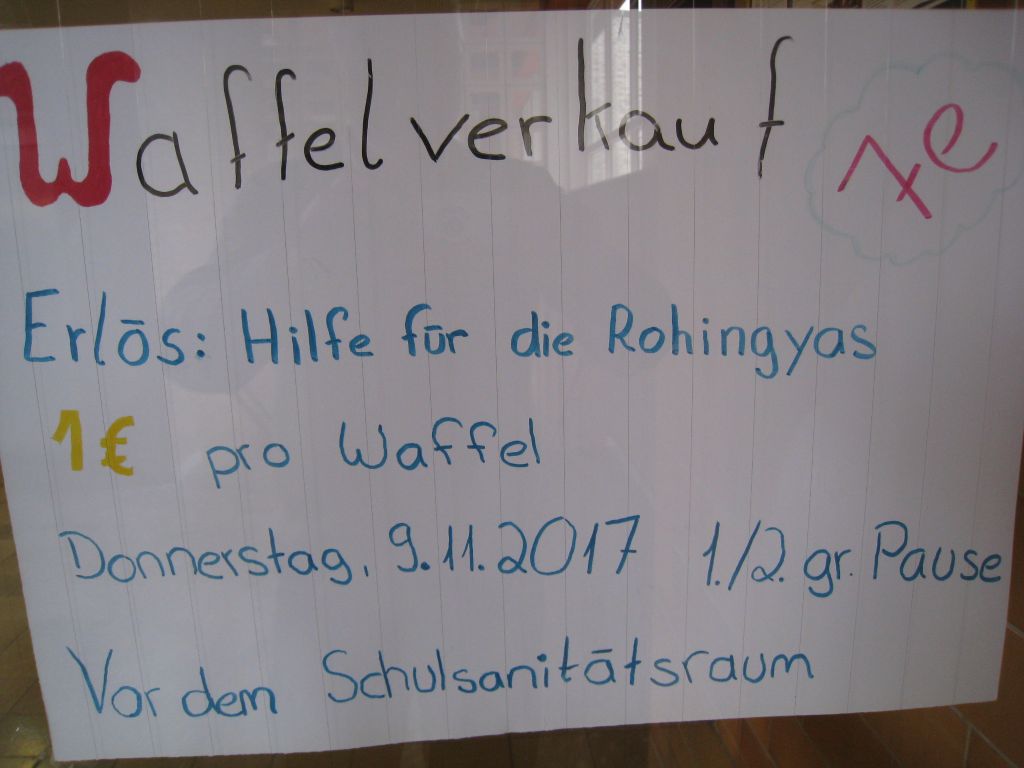 Waffelverkauf 7e
Erlös: Hilfe für die Rohingyas
1€ pro Waffel
Donnerstag, 9.11.2017 1./2. gr. Pause
Vor dem Schulsanitätsraum